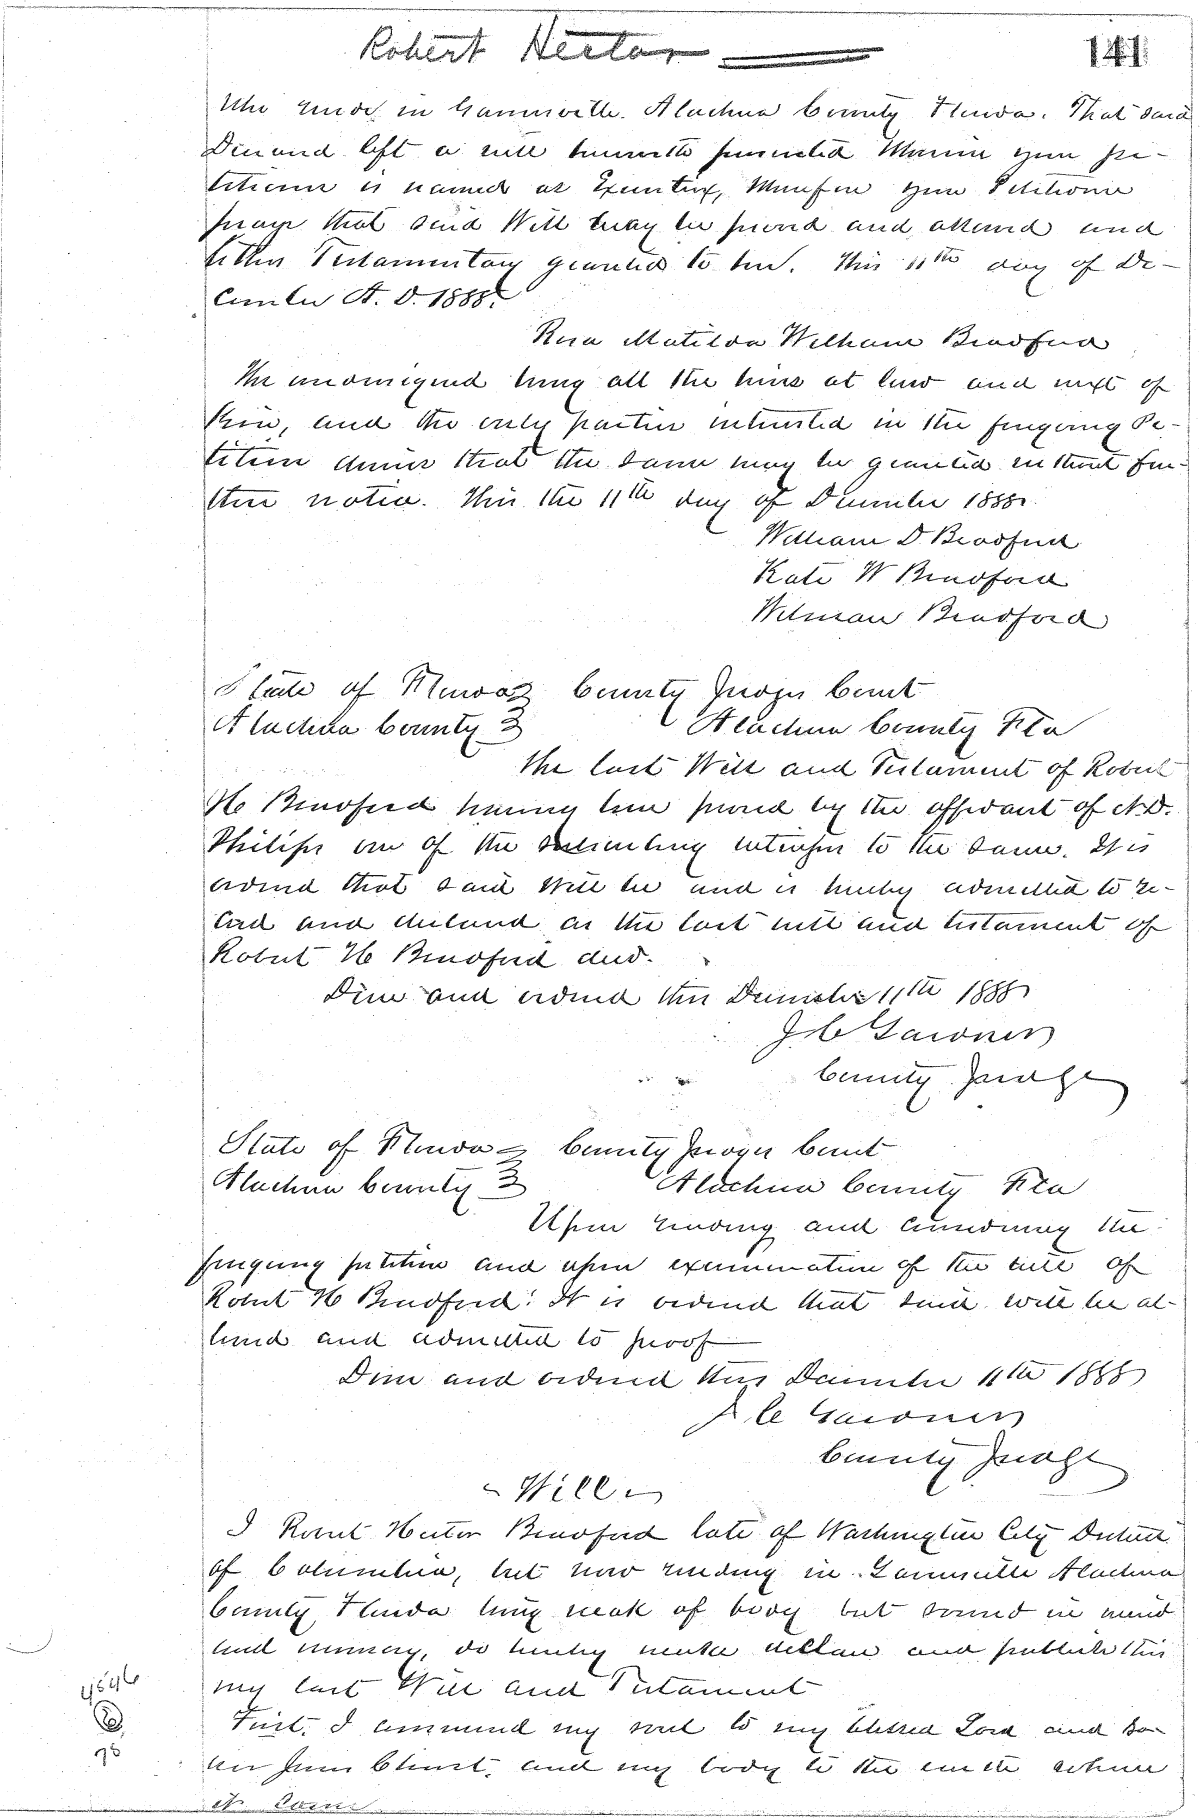 Robert Hector 141
who reside in Gainesville. Alachua County Florida. That said
Diseased left a will herewith presented Wherein your pe-
titioner is named as Executrix, Wherefore your Petitioner
prays that said Will may be proved and allowed and
letters Testamentary granted to her. This 11th day of De-
cember A. D. 1888.
Rosa Matilda Bradford
The undersigned being all the heirs at law and next of
Kin, and the only parties interested in the foregoing Pe-
tition desires that the same may be granted without fur-
ther notice. This the 11th day of December 1888.
William D Bradford
Kate W Bradford
Bradford
State of Florida County Judges Court
Alachua County Alachua County Fla
The last Will and Testament of Robert
H Bradford having been proved by the affidavit of N.D.
Philips one of the subscribing witnesses to the same. It is
ordered that said Will be and is hereby admitted to re-
cord and declared as the last will and testament of
Robert H Bradford decd.
Done and ordered this December 11th 1888
J C Gardner
County Judge
State of Florida County Judges Court
Alachua County Alachua County Fla
Upon reading and considering the
foregoing petition and upon examination of the will of
Robert H Bradford. It is ordered that said will be al-
lowed and admitted to proof
Done and ordered this December 11th 1888
J C Gardner
County Judge
- Will -
I Robert Hector Bradford late of Washington City District
of Columbia, but now residing in Gainesville Alachua
County Florida being weak of body but sound in mind
and memory, do hereby make declare and publish this
my last Will and Testament
First. I commend my soul to my blessed Lord and Sa-
vior Jesus Christ, and my body to the earth whence
it came